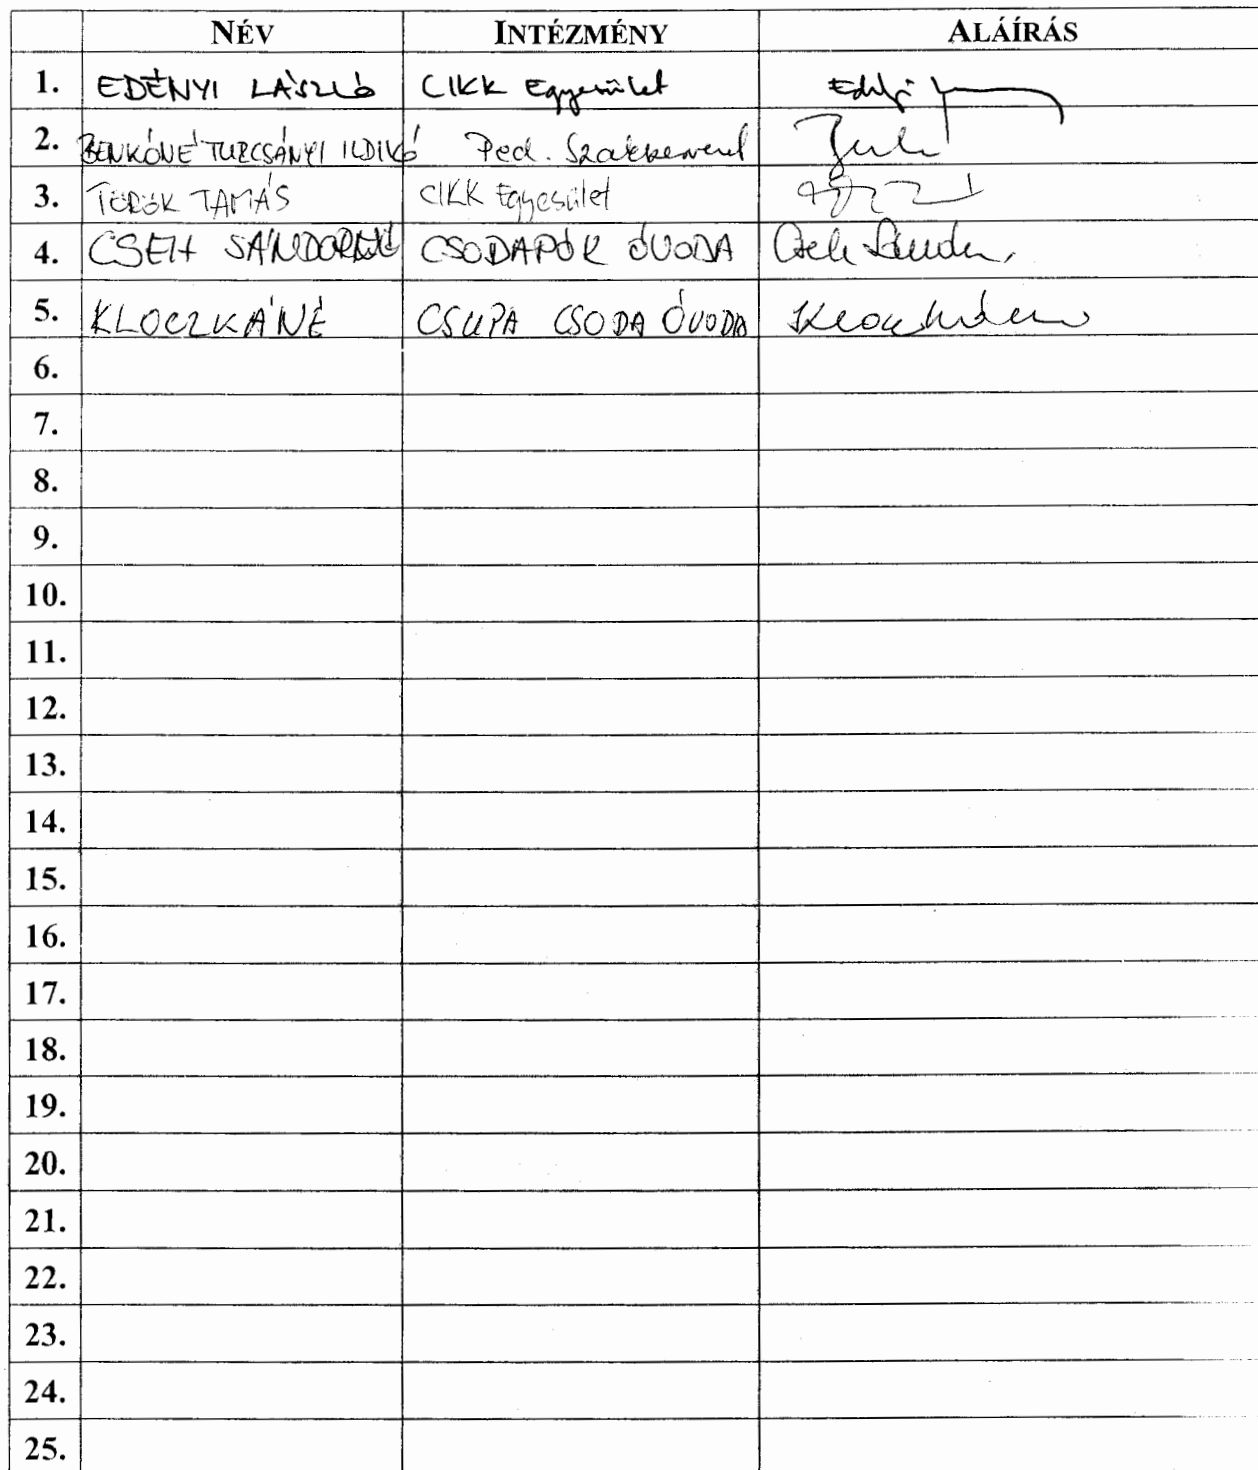 NÉV INTÉZMÉNY ALÁÍRÁS
1. EDÉNYI LÁSZLÓ CIKK Egyesület
2. BENKÓNÉ TURCSÁNYI ILDIKÓ Ped. Szakszervezet
3. TÖRÖK TAMÁS CIKK Egyesület
4. CSEH SÁNDORNÉ CSODAPÓK ÓVODA Cseh Sándorné
5. KLOCZKÁNÉ CSUPA CSODA ÓVODA Kloczkáné
6.
7.
8.
9.
10.
11.
12.
13.
14.
15.
16.
17.
18.
19.
20.
21.
22.
23.
24.
25.